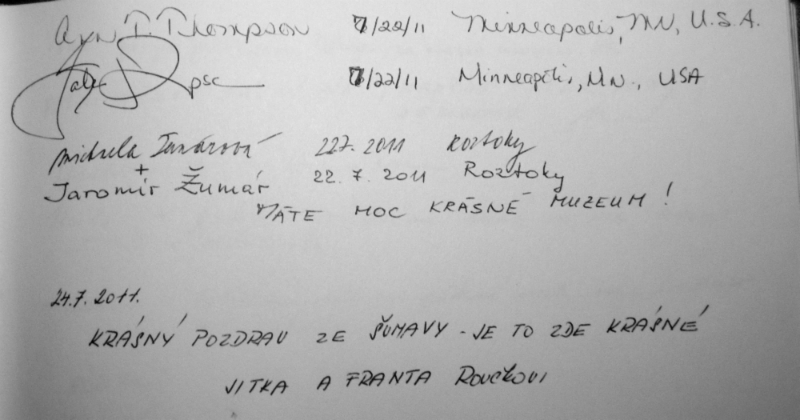 Ayn T. Thompson 7/22/11 Minneapolis, MN, U.S.A.
7/22/11 Minneapolis, MN., USA
Michaela 22.7. 2011 Roztoky
+
Jaromír Žumár 22. 7. 2011 Roztoky
MÁTE MOC KRÁSNÉ MUZEUM!
24.7. 2011.
KRÁSNÝ POZDRAV ZE ŠUMAVY - JE TO ZDE KRÁSNÉ
JITKA A FRANTA